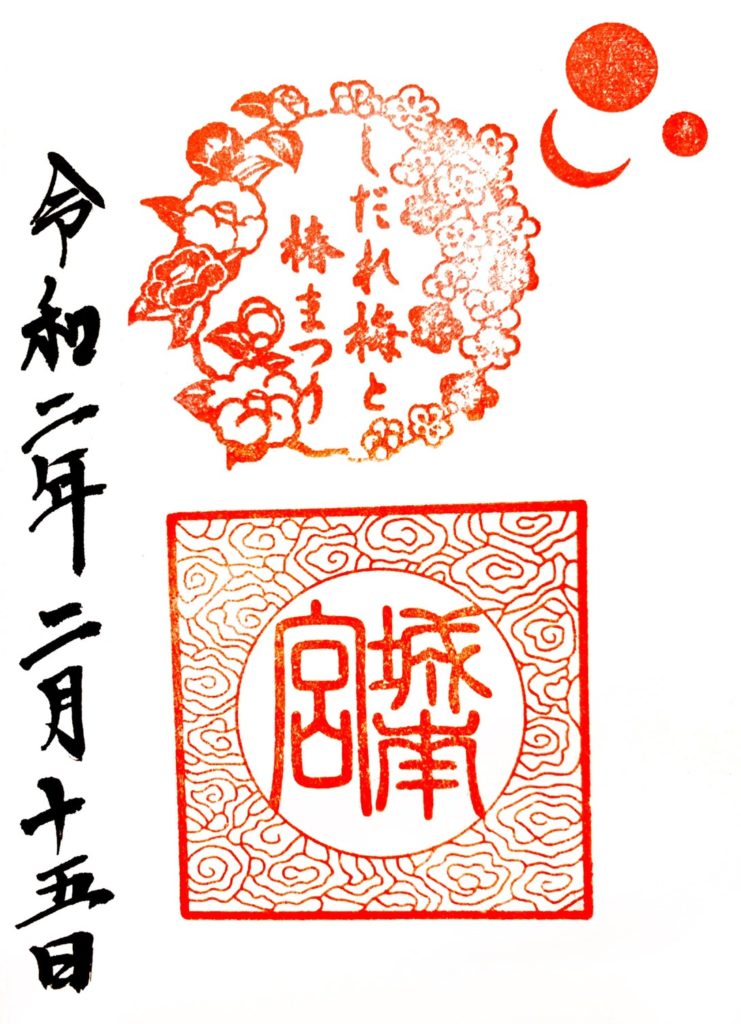 しだれ梅と
椿まつり
城南
宮
令和二年二月十五日